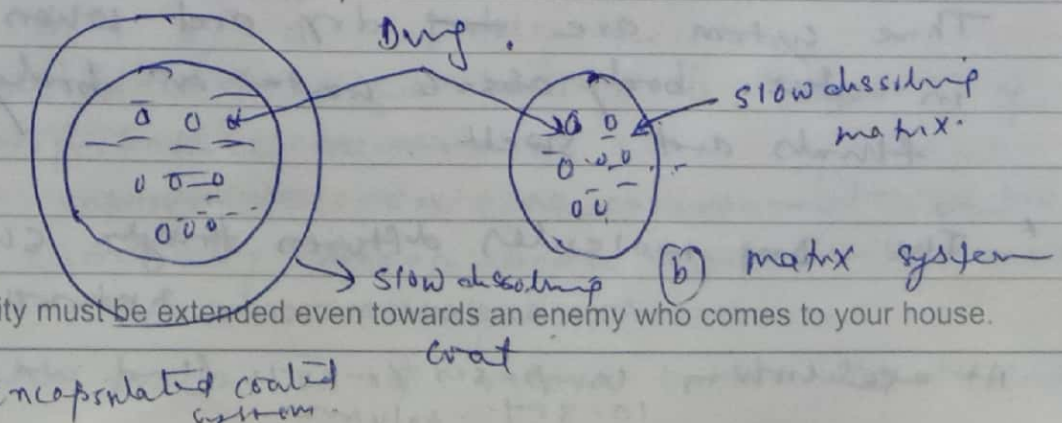 Drug.
slow dissolving
matrix.
slow dissolving
coat
(b) matrix system
ity must be extended even towards an enemy who comes to your house.
ncapsulated coated
system.